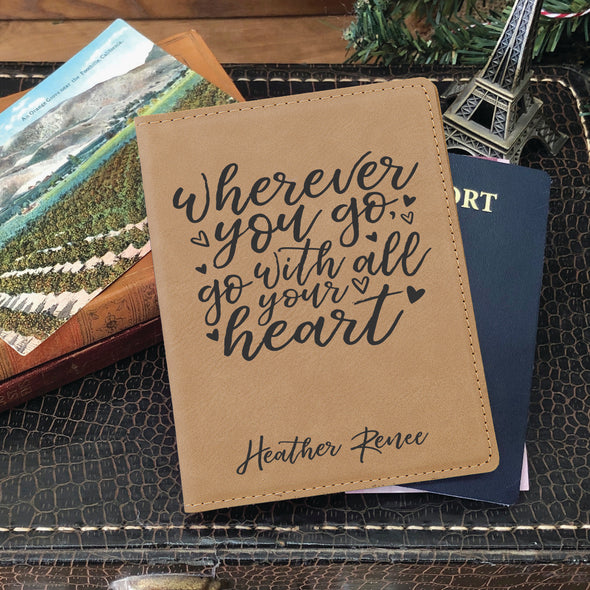 An Orange Grove near the Foothills, California.
wherever
you go,
go with all
your
heart
Heather Renee
ORT